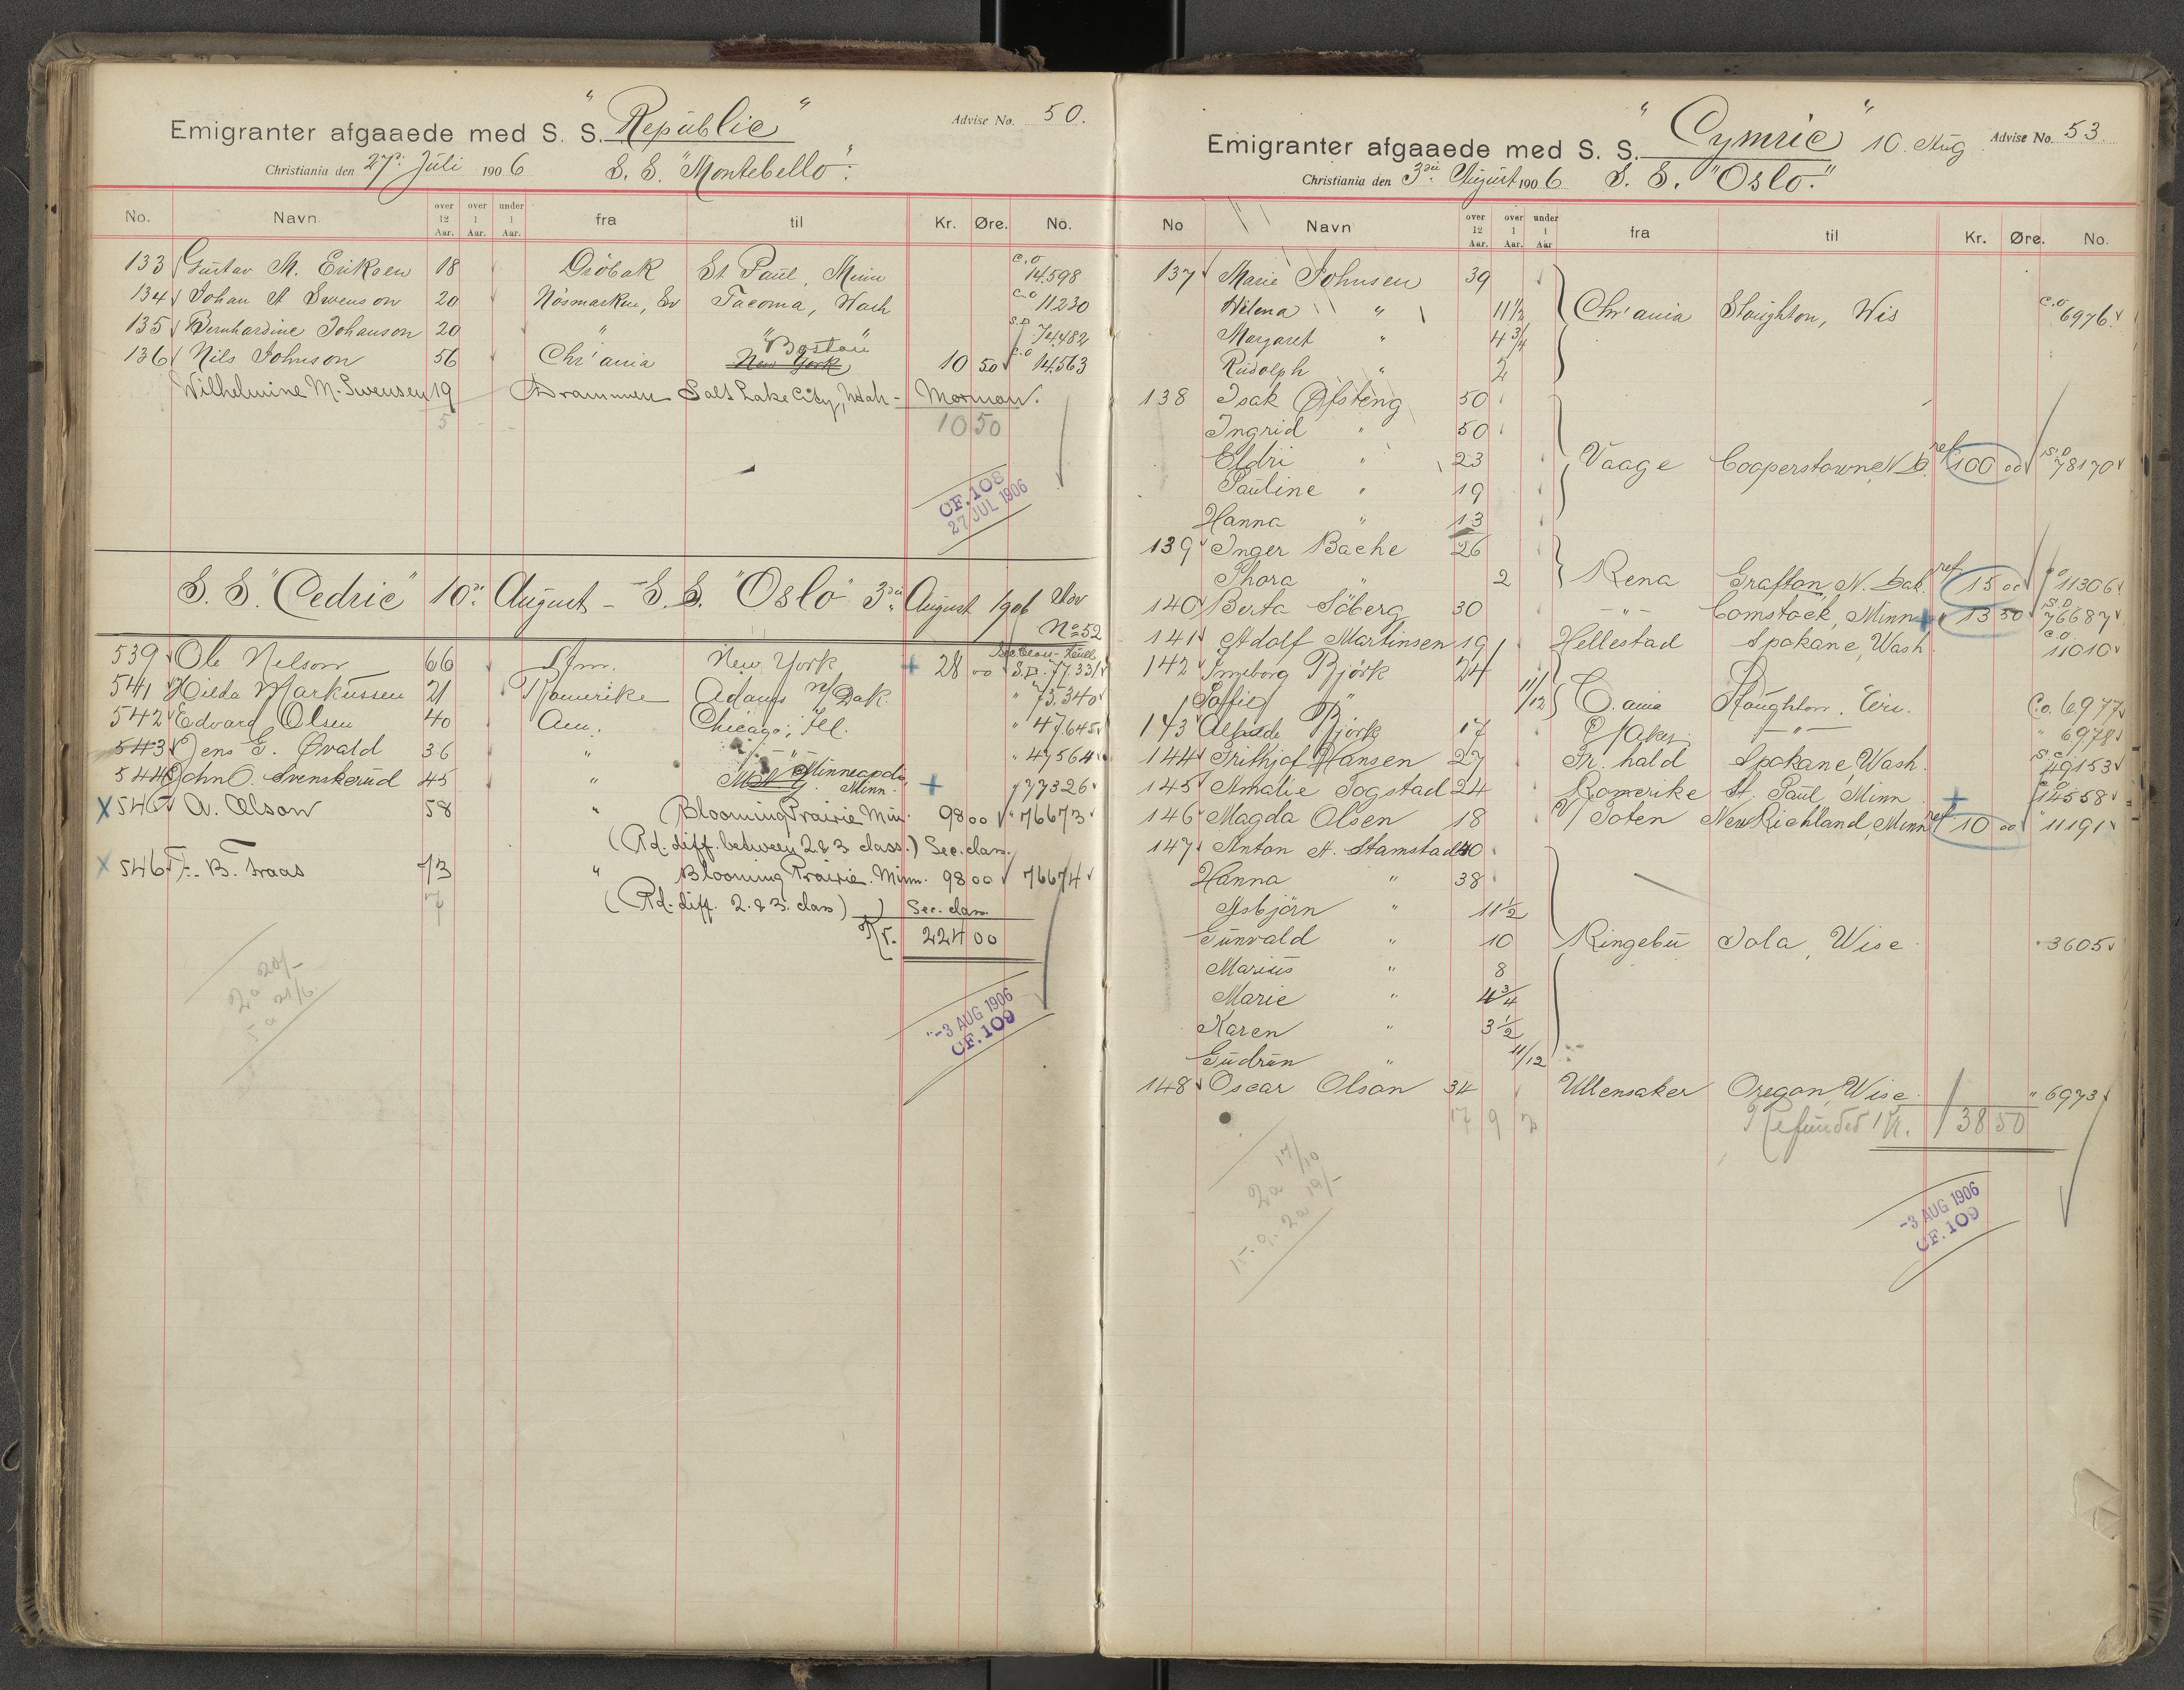 Emigranter afgaaede med S. S. "Republic" Advise No. 50.
Christiania den 27de Juli 1906 S. S. "Montebello".
No. Navn. over 12 Aar. over 1 Aar. under 1 Aar. fra til Kr. Øre. No.
133 Gustav M. Eriksen 18 Dröbak St. Paul, Minn C.O 14598
134 Johan A Swenson 20 Nösmarken, Sv Tacoma, Wash C.O 11230
135 Bernhardine Johanson 20 " " " S.D 74482
136 Nils Johnson 56 Chr'ania New York Boston 10 50 C.O 14563
Wilhelmine M. Swensen 19 Drammen Salt Lake City, Utah - Mormon.
5 10 50
CF. 108
27 JUL 1906
S. S. "Cedric" 10de August - S. S. "Oslo" 3die August 1906 Adv No 52
539 Ole Nelson 66 New York + 28 00 S.D. 77331
541 Hilda Markussen 21 Romerike Adams N/Dak. " 75340
542 Edvard Olsen 40 Am. Chicago, Ill. " 47645
543 Jens G. Øvald 36 " - " - " 47564
544 John O. Svenskerud 45 " Minneapolis Minn. + " 77326
X 545 A. Olson 58 " Blooming Prairie Min. 98 00 " 76673
(Pd. diff. between 2 & 3 class.) Sec. class.
X 546 F. B. Traas 73 " Blooming Prairie. Minn. 98 00 76674
(Pd. diff. 2. & 3. class) Sec. class.
7 Kr. 224 00
2a 20/-
5a 21/6.
-3 AUG 1906
CF. 109
Emigranter afgaaede med S. S. "Cymric" 10 Aug Advise No. 53.
Christiania den 3die August 1906 S. S. "Oslo."
No Navn over 12 Aar. over 1 Aar. under 1 Aar fra til Kr. Øre. No.
137 Marie Johnsen 39
Wilena " 11 1/2 Chr'ania Stoughton, Wis C.O 6976
Margaret " 4 3/4
Rudolph " 2
138 Isak Øfsteng 50
Ingrid " 50
Eldri " 23 Vaage Cooperstown N.D. ref 100 00 S.D 78170
Pauline " 19
Hanna " 13
139 Inger Bache 26
Thora " 2 Rena Grafton, N. Dak. ref 15 00 C.O 11306
140 Berta Söberg 30 - " - Comstock, Minn + 13 50 S.D 76687
141 Adolf Martinsen 19 Hellestad Spokane, Wash. C.O. 11010
142 Ingeborg Björk 24
Soffie " 11/12 C.ania Stoughton. C.O. 6977
143 Björk 17 - " - " 6978
144 Frithjof Hansen 27 Fr. hald Spokane, Wash. 49153
145 Amalie Togstad 24 Romerike St. Paul, Minn + 14558
146 Magda Olsen 18 V/ Toten New Richland, Minn ref 10 00 " 11191
147 Anton A. Stamstad 40
Hanna " 38
Asbjörn " 11 1/2
Gunvald " 10 Ringebu Iola, Wisc. " 3605
Marius " 8
Marie " 4 3/4
Karen " 3 1/2
Gudrun " 11/12
148 Oscar Olson 34 Ullensaker Oregon, Wisc. " 6973
17 9 2 Refunded Kr. 138 50
2a 17/10
15. 9. 2a 19/-
-3 AUG 1906
CF. 109